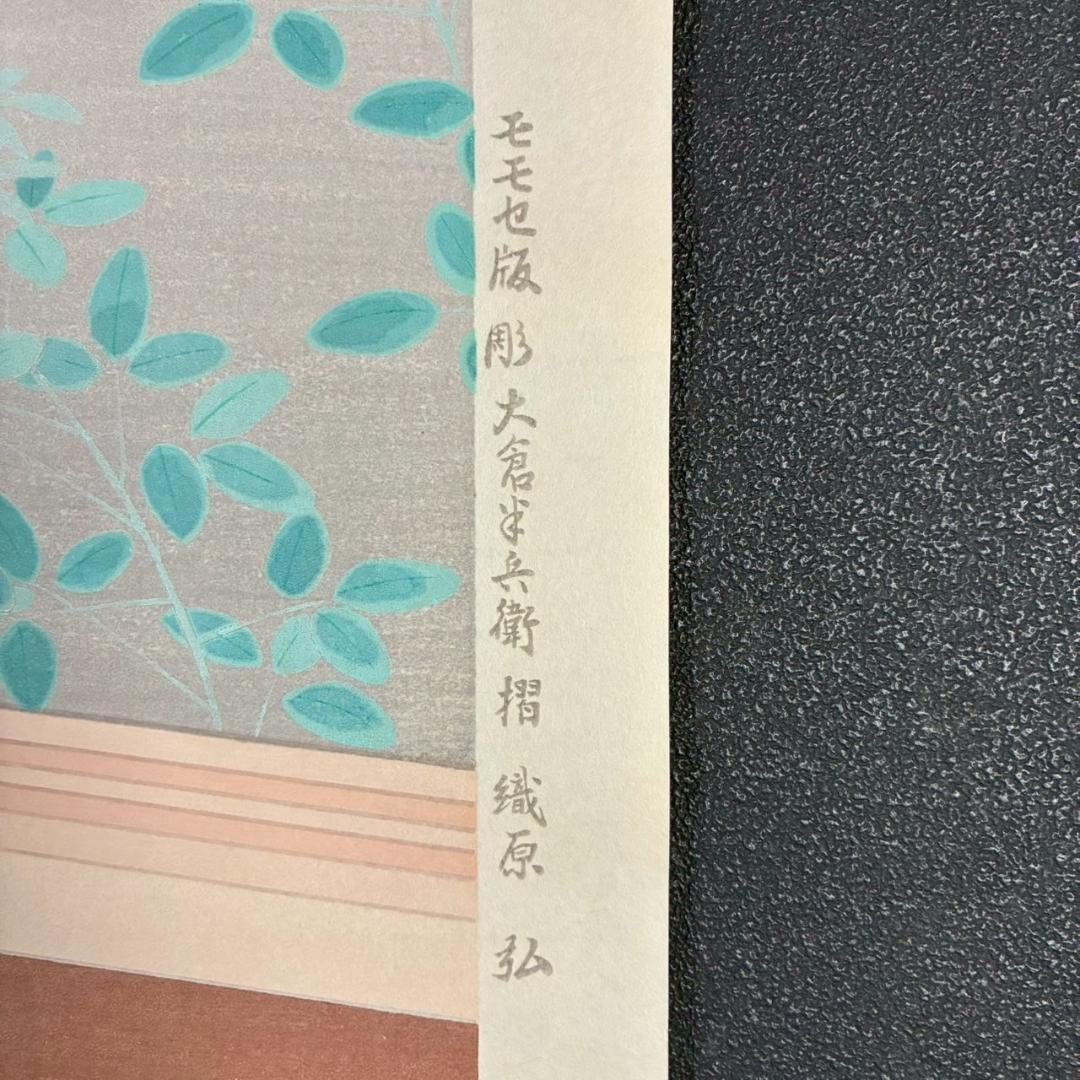 モモセ版 彫 大倉半兵衛 摺 織原 弘